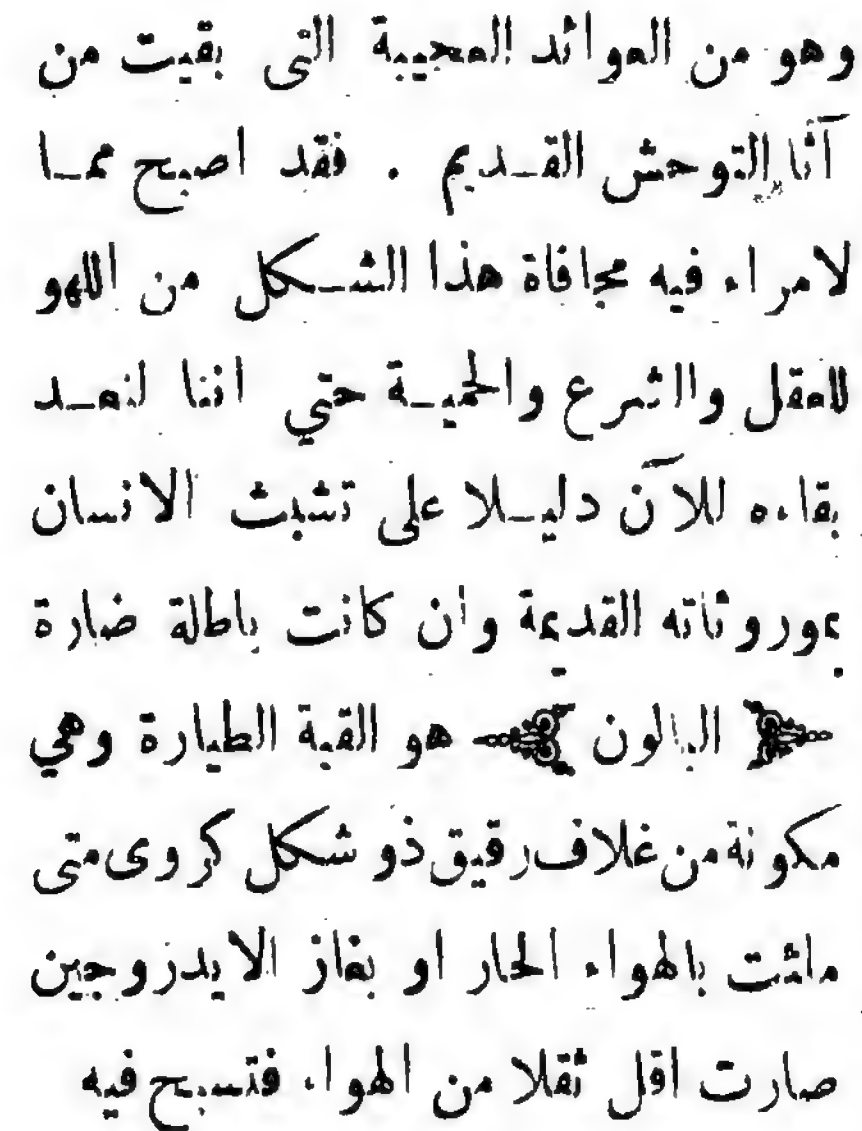 وهو من العوائد العجيبة التى بقيت من
آثا التوحش القديم . فقد اصبح مما
لامراء فيه مجافاة هذا الشكل من اللهو
للعقل والشرع والحمية حتي اننا لنعد
بقاءه للآن دليلا على تشبث الانسان
بموروثاته القديمة وان كانت باطلة ضارة
البالون هو القبة الطيارة وهي
مكونة من غلاف رقيق ذو شكل كروى متى
ملئت بالهواء الحار او بغاز الايدروجين
صارت اقل ثقلا من الهواء فتسبح فيه